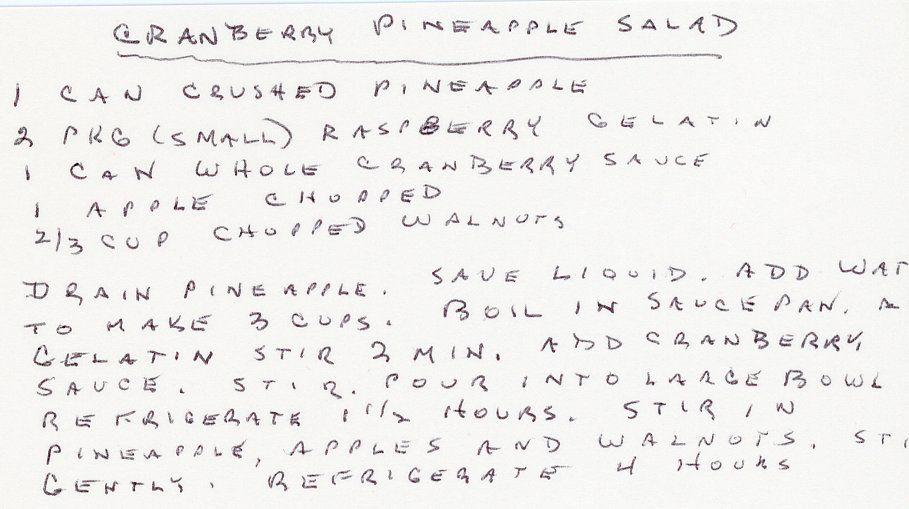 CRANBERRY PINEAPPLE SALAD
1 CAN CRUSHED PINEAPPLE
2 PKG (SMALL) RASPBERRY GELATIN
1 CAN WHOLE CRANBERRY SAUCE
1 APPLE CHOPPED
2/3 CUP CHOPPED WALNUTS
DRAIN PINEAPPLE. SAVE LIQUID. ADD WAT
TO MAKE 3 CUPS. BOIL IN SAUCEPAN. A
GELATIN STIR 2 MIN. ADD CRANBERRY
SAUCE. STIR. POUR INTO LARGE BOWL
REFRIGERATE 1 1/2 HOURS. STIR IN
PINEAPPLE, APPLES AND WALNUTS. STI
GENTLY. REFRIGERATE 4 HOURS